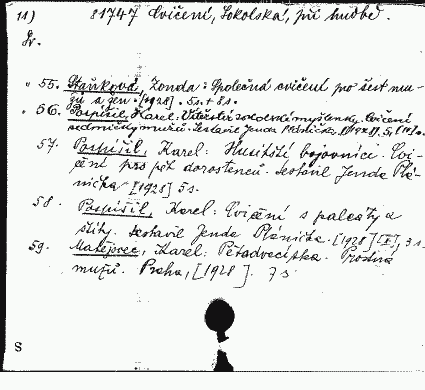 11) 81747 Cvičení, Sokolská, při hudbě.
Dr.
55. Staňková, Zonda: Společná cvičení pro šest mu-
žů a žen. [1928]. 5s. + 8s.
56. Pospíšil, Karel: Vítězství sokolské myšlenky. Cvičení
sedmičky mužů. Sestavil Jenda Plánička. [1928]. 5
57. Pospíšil, Karel: Husitští bojovníci. Cvi-
čení pro pět dorostenců. Sestavil Jenda Plá-
nička [1928] 5s.
58. Pospíšil, Karel: Cvičení s palcáty a
štíty. Sestavil Jenda Plánička. [1928] [I], 3 s.
59. Matějovec, Karel: Pětadvacítka. Prostná
mužů. Praha, [1928]. 7 s.
S